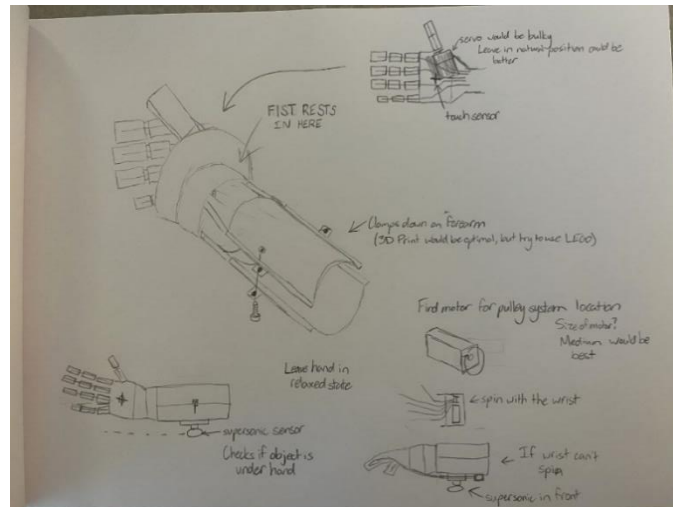 servo would be bulky
Leave in natural position could be
better
touch sensor
FIST RESTS
IN HERE
Clamps down on Forearm
(3D Print would be optimal, but try to use LEGO)
Find motor for pulley system location
Size of motor?
Medium would be
best
Leave hand in
relaxed state
spin with the wrist
supersonic sensor
Checks if object is
under hand
If wrist can't
spin
supersonic in front